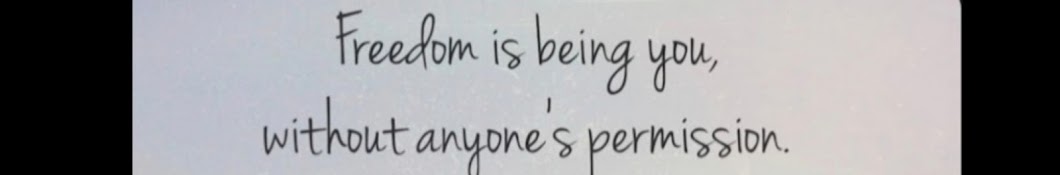 Freedom is being you,
without anyone's permission.